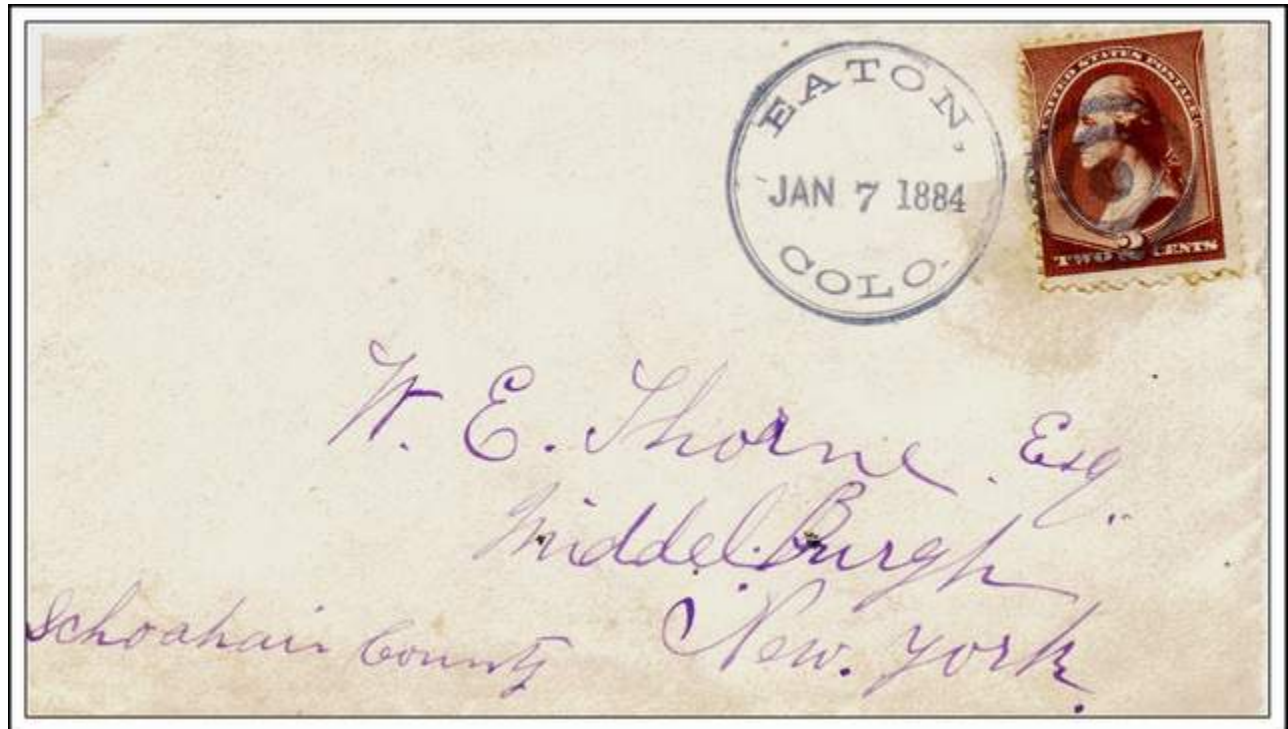 EATON,
JAN 7 1884
COLO.
UNITED STATES POSTAGE
2
TWO CENTS
W. E. Thorne Esq.
Middel.Burgh
New. York.
Schoahair County